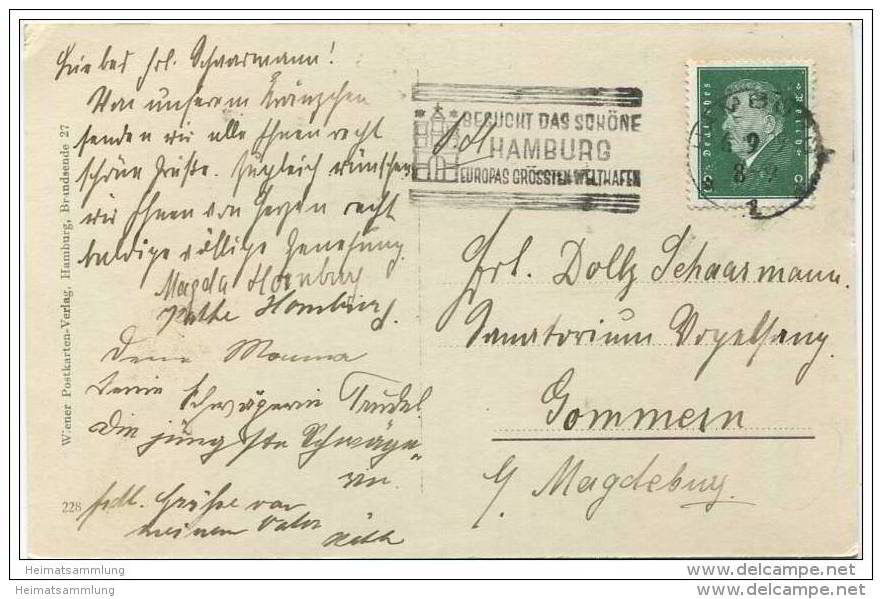 Liebes Frl. Schaarmann!
Von unserem Kränzchen
senden wir alle Ihnen recht
schöne Grüße. Zugleich wünschen
wir Ihnen von Herzen recht
baldige völlige Genesung.
Magda Homburg
Käthe Homburg.
Deine Mamma
Deine Schwägerin Trudel
Die jüngste Schwäge-
rin.
frdl. Grüße von
meinem Vater
Wiener Postkarten-Verlag, Hamburg, Brandsende 27
228
BESUCHT DAS SCHÖNE
HAMBURG
EUROPAS GRÖSSTEN WELTHAFEN
Deutsches Reich
8
Frl. Dolly Schaarmann.
Sanatorium Vogelsang.
Gommern
b/ Magdeburg.
Heimatsammlung
Heimatsammlung
www.delcampe.net
www.delcampe.net